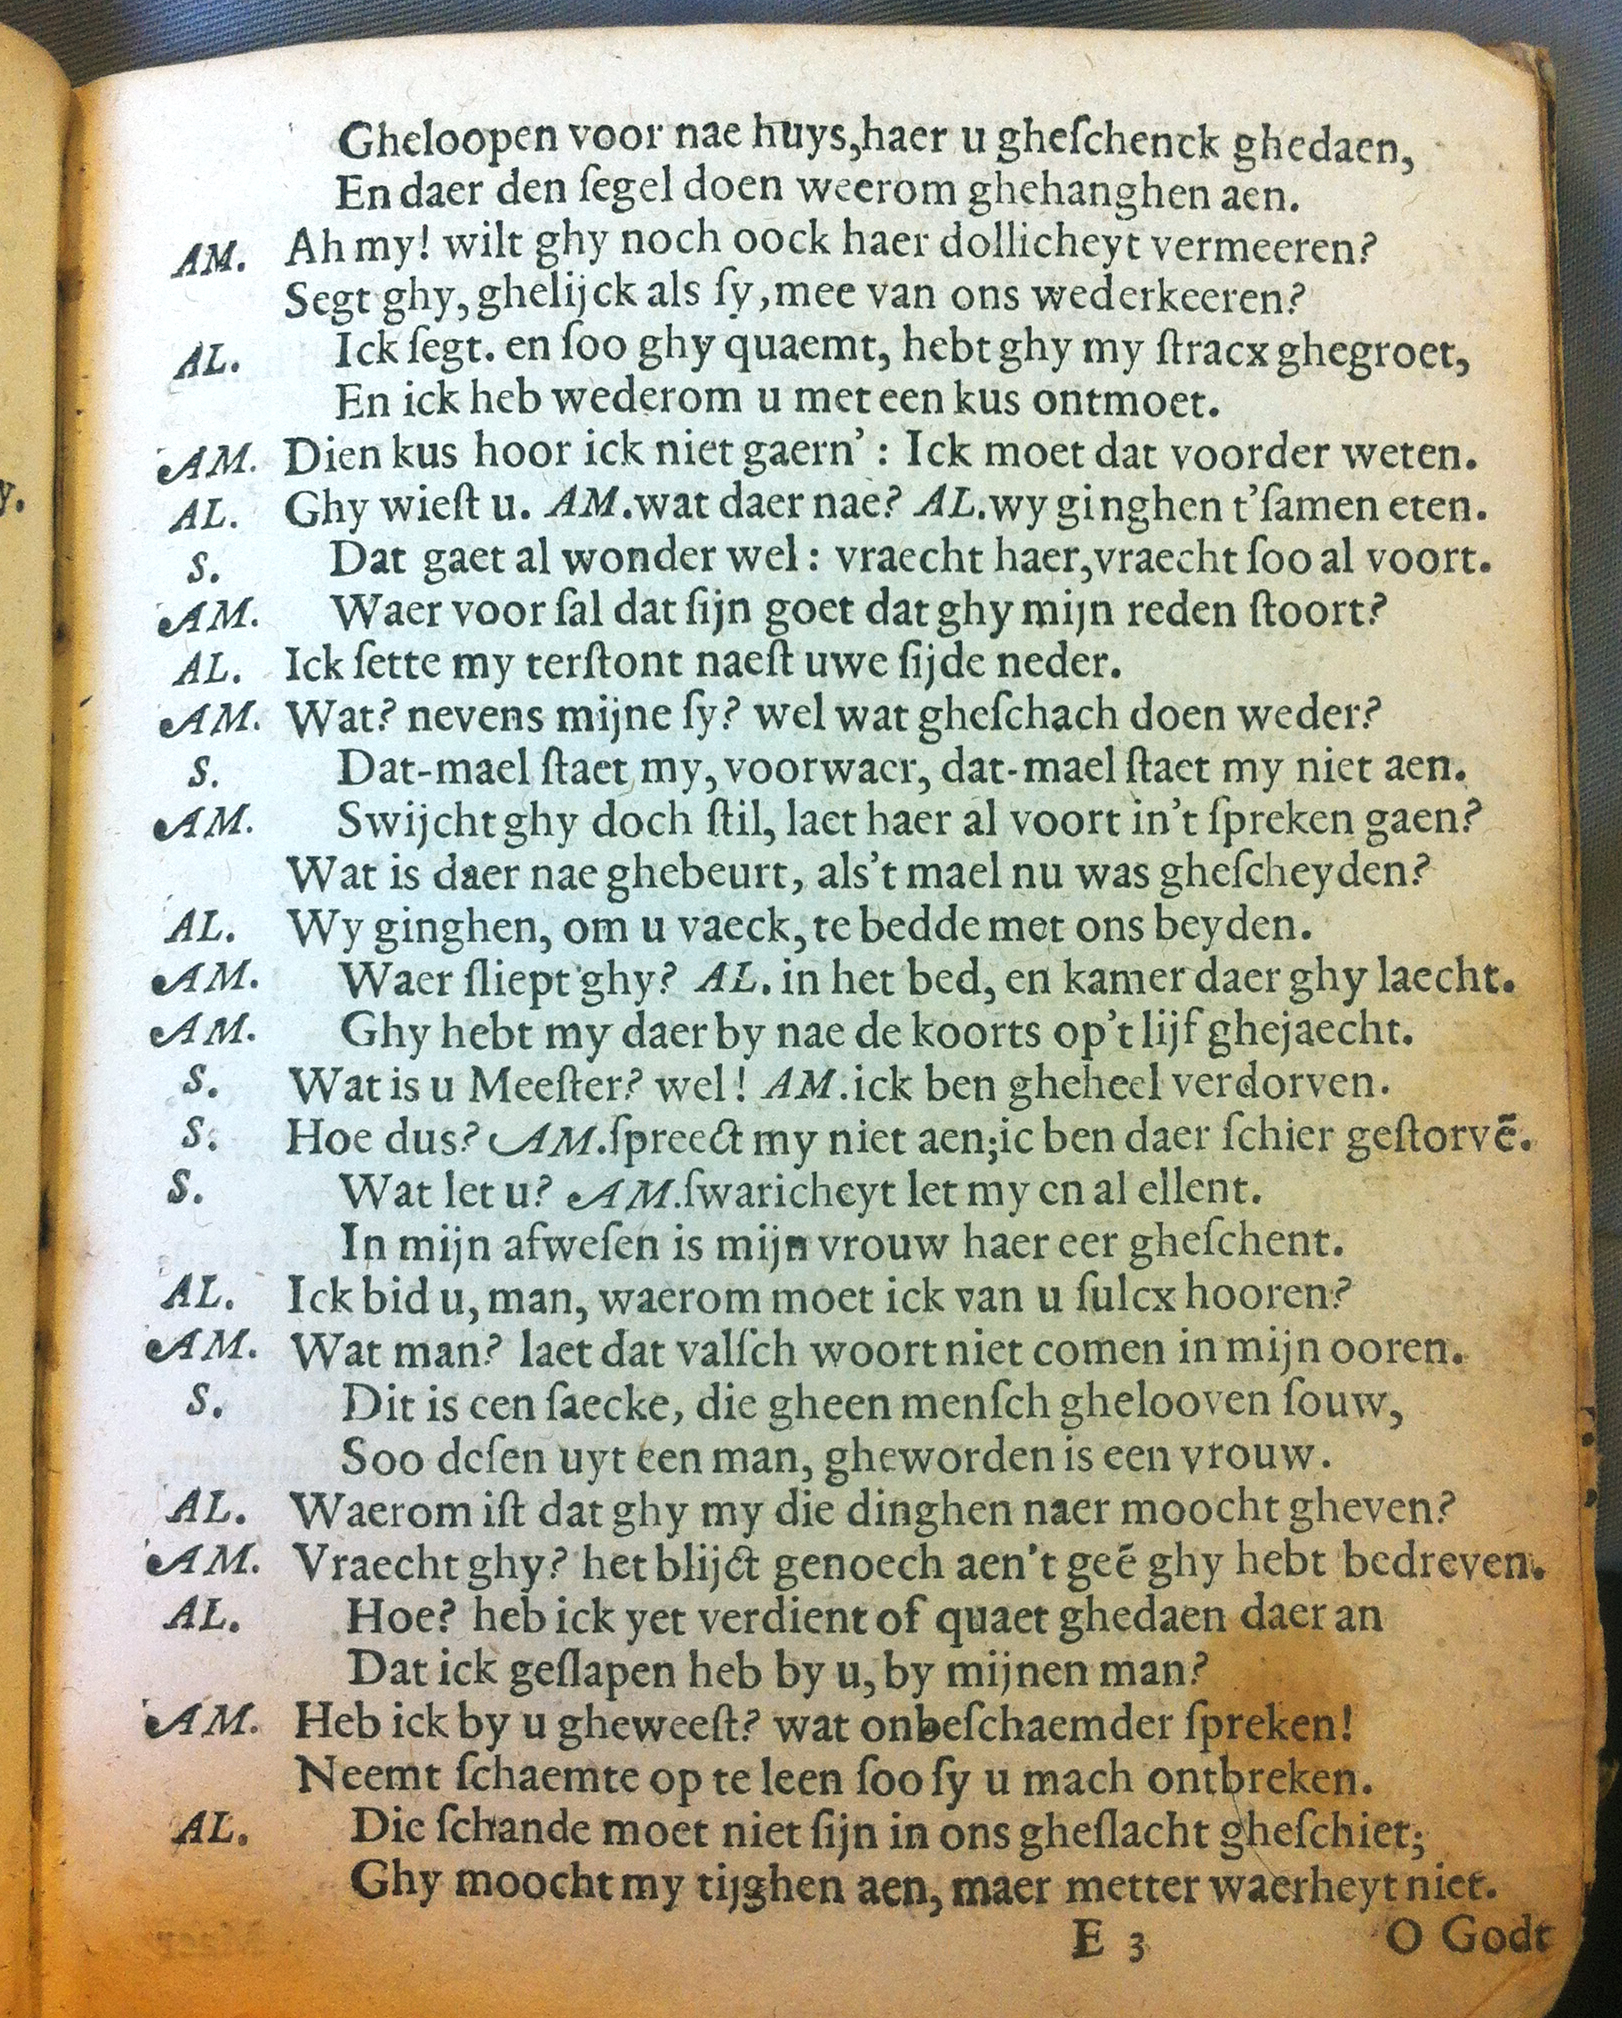 Gheloopen voor nae huys, haer u gheſchenck ghedaen,
En daer den ſegel doen weerom ghehanghen aen.
AM. Ah my! wilt ghy noch oock haer dollicheyt vermeeren?
Segt ghy, ghelijck als ſy, mee van ons wederkeeren?
AL. Ick ſegt. en ſoo ghy quaemt, hebt ghy my ſtracx ghegroet,
En ick heb wederom u met een kus ontmoet.
AM. Dien kus hoor ick niet gaern' : Ick moet dat voorder weten.
AL. Ghy wieſt u. AM. wat daer nae? AL. wy ginghen t'ſamen eten.
S. Dat gaet al wonder wel : vraecht haer, vraecht ſoo al voort.
AM. Waer voor ſal dat ſijn goet dat ghy mijn reden ſtoort?
AL. Ick ſette my terſtont naeſt uwe ſijde neder.
AM. Wat? nevens mijne ſy? wel wat gheſchach doen weder?
S. Dat-mael ſtaet my, voorwaer, dat-mael ſtaet my niet aen.
AM. Swijcht ghy doch ſtil, laet haer al voort in't ſpreken gaen?
Wat is daer nae ghebeurt, als't mael nu was gheſcheyden?
AL. Wy ginghen, om u vaeck, te bedde met ons beyden.
AM. Waer ſliept ghy? AL. in het bed, en kamer daer ghy laecht.
AM. Ghy hebt my daer by nae de koorts op't lijf ghejaecht.
S. Wat is u Meeſter? wel! AM. ick ben gheheel verdorven.
S. Hoe dus? AM. ſpreect my niet aen; ic ben daer ſchier geſtorvē.
S. Wat let u? AM. ſwaricheyt let my en al ellent.
In mijn afweſen is mijn vrouw haer eer gheſchent.
AL. Ick bid u, man, waerom moet ick van u ſulcx hooren?
AM. Wat man? laet dat valſch woort niet comen in mijn ooren.
S. Dit is een ſaecke, die gheen menſch ghelooven ſouw,
Soo deſen uyt een man, gheworden is een vrouw.
AL. Waerom iſt dat ghy my die dinghen naer moocht gheven?
AM. Vraecht ghy? het blijct genoech aen't geē ghy hebt bedreven.
AL. Hoe? heb ick yet verdient of quaet ghedaen daer an
Dat ick geſlapen heb by u, by mijnen man?
AM. Heb ick by u gheweeſt? wat onbeſchaemder ſpreken!
Neemt ſchaemte op te leen ſoo ſy u mach ontbreken.
AL. Die ſchande moet niet ſijn in ons gheſlacht gheſchiet;
Ghy moocht my tijghen aen, maer metter waerheyt niet.
E 3 O Godt